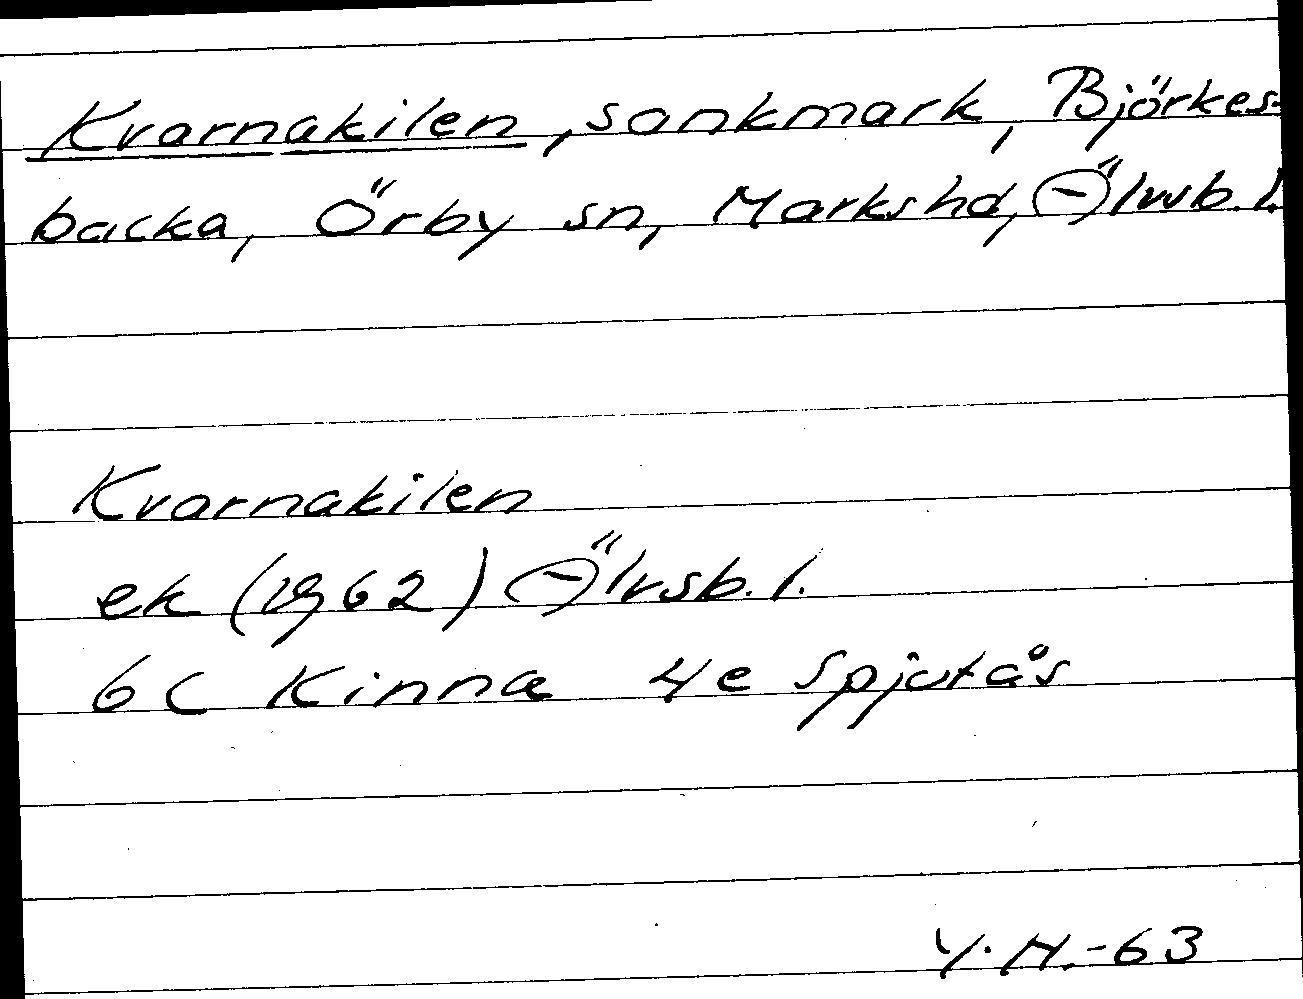 Kvarnakilen, sankmark, Björkes-
backa, Örby sn, Marks hd, Älvsb. l.
Kvarnakilen
ek (1962) Älvsb. l.
6C Kinna 4e Spjutås
Y. H. -63